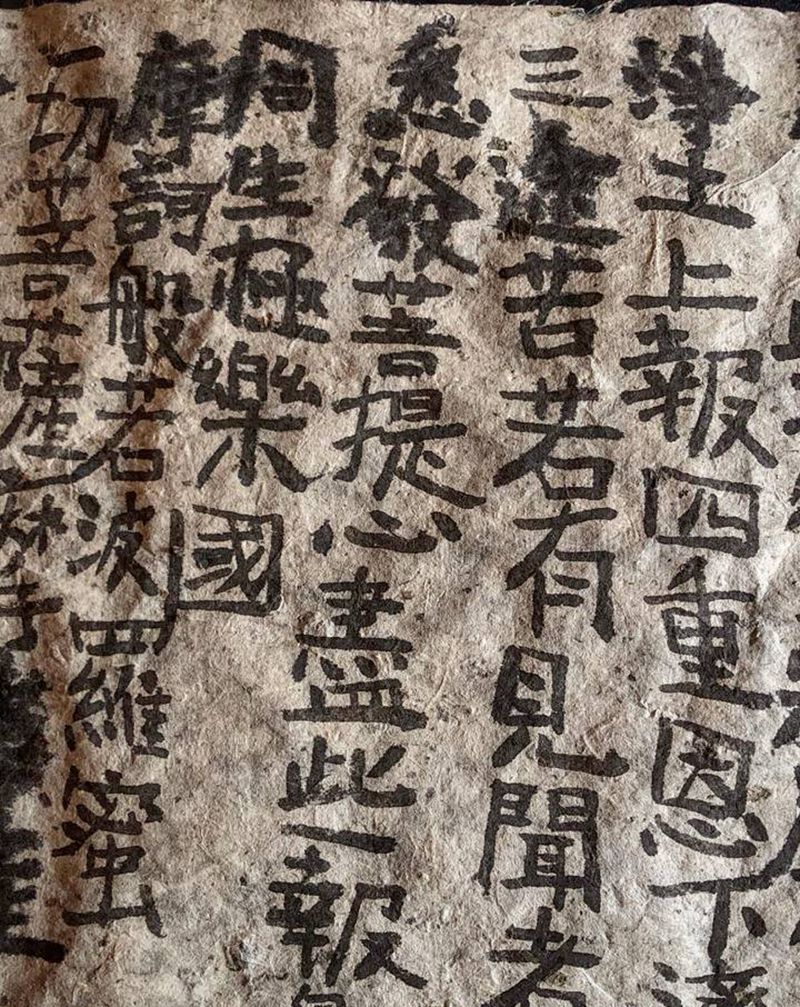 淨土上報四重恩下
三途苦若有見聞者
悉發菩提心盡此一報
同生極樂國
摩訶般若波羅蜜
一切菩薩摩